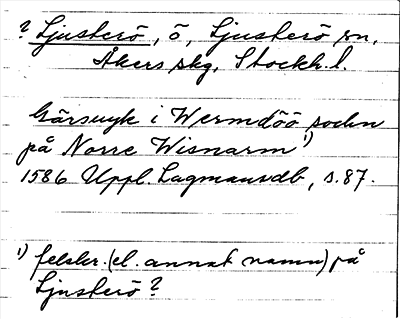 ? Ljusterö, ö, Ljusterö sn,
Åkers skg, Stockh. l.
Gärsuyk i Wermdöö sockn
på Norre Wisnarm 1)
1586 Uppl. Lagmansdb, s. 87.
1) felskr. (el. annat namn) på
Ljusterö ?